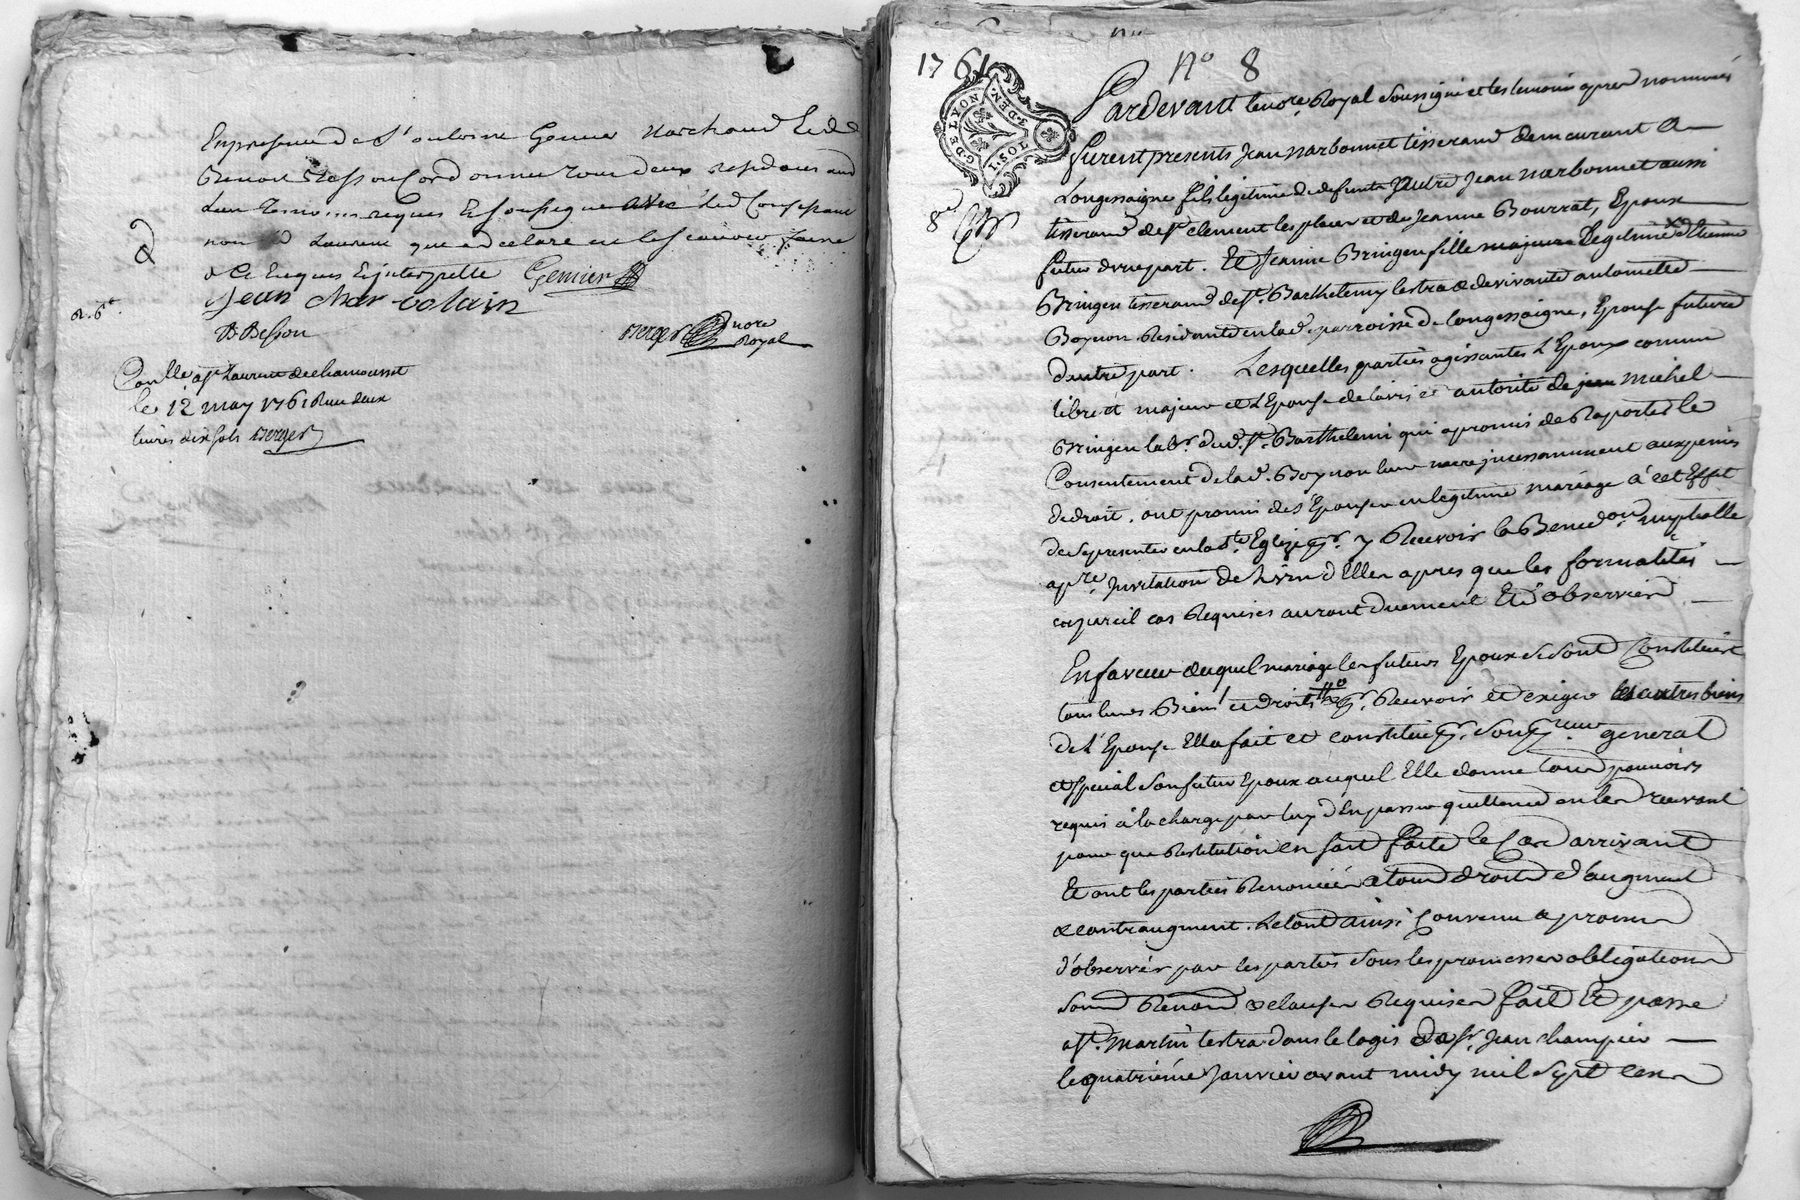 En presence de Sr antoine Genier Marchand Et de
Benoit Besson Cordonnier tous deux residents aud
Lieu temoins requis Et soussignes avec led
non lad Laurent que a declare ne le scavoir faire
de Ce Enquis Et interpellé Gemier
Jean char volain
B Besson
Berger nore
Royal
Conllé a St Laurent de chamousset
le 12 may 1761 Reçu deux
livres dix sols Berger
1761 No 8
G. DE LYON
1. SOL 3. DEN.
8e
Pardevant le nore Royal soussigné et les temoins apres nommés
furent presents Jean narbonnet tisserand demeurant a
Longessaigne fils legitime de defunt autre Jean narbonnet aussi
tisserand de St clement les places et de Jeanne Bourrat, Epoux
futur d'une part. Et Jeanne Bringeu fille majeure Legitime d'Etienne
Bringeu tisserand de St. Barthelemy lestra & de vivante antoinette
Boynon Residante en lad. parroisse de longessaigne, Epouse future
d'autre part. Lesquelles parties agissantes L'Epoux comme
libre et majeur et L'Epouse de lavis et autorité de jean michel
Bringeu labr. dud. St. Barthelemi qui a promis de Raporter le
Consentement de lad. Boynon leur mere incessamment aux peines
de droit, ont promis de s'Epouser en legitime mariage à cet Effet
de se presenter en la ste Eglize pr. y Recevoir la Benedon. nuptialle
a pre. Invitation de l'un d'Eller apres que les formalités
en pareil cas Requises auront duement Eté observées
En faveur duquel mariage les futurs Epoux se sont Constitués
tous leurs Biens et droits pr. Recevoir et exiger les autres biens
de L'Epouse Elle a fait et constitué pr. son preur general
et special son futur Epoux auquel Elle donne tous pouvoirs
requis à la charge par luy d'En passer quittance en les recevant
pour que Restitution en soit faite le Cas arrivant
Et ont les parties Renoncées a tous droits d'augment
& contraugment. Le tout ainsi Convenu & promis
d'observer par les parties sous les promesses obligations
soum Renon & clauses Requises fait Et passé
a St. Martin lestra dans le logis de Sr. Jean champier
le quatrième Janvier avant midy mil sept cens